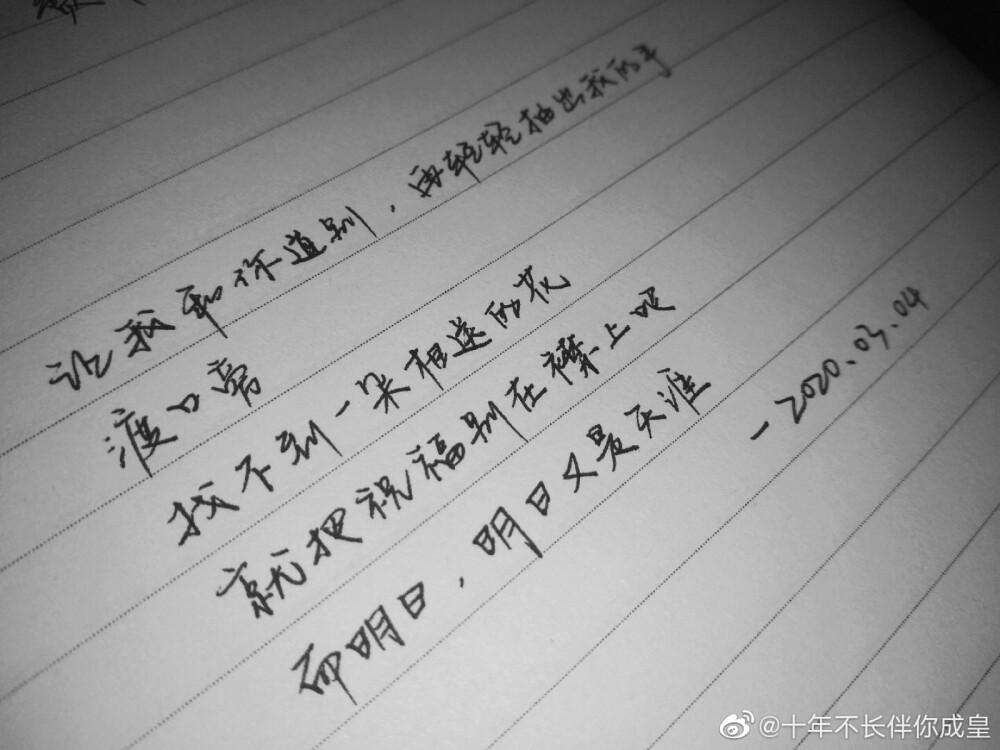 让我和你道别，再轻轻抽出我的手
渡口旁
找不到一朵相送的花
就把祝福别在襟上吧
而明日，明日又是天涯
—2020.03.04
@十年不长伴你成皇